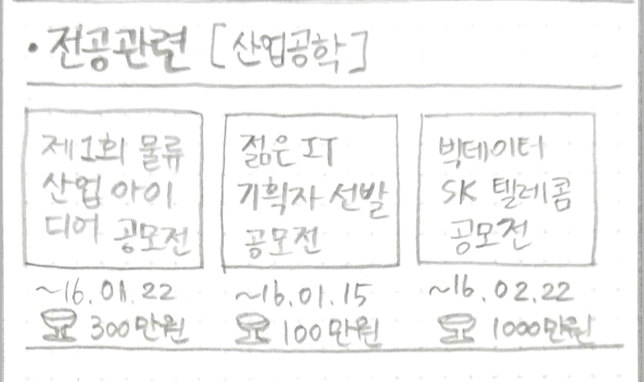 • 전공관련 [산업공학]
제1회 물류
산업 아이
디어 공모전
~16.01.22
300만원
젊은 IT
기획자 선발
공모전
~16.01.15
100만원
빅데이터
SK 텔레콤
공모전
~16.02.22
1000만원